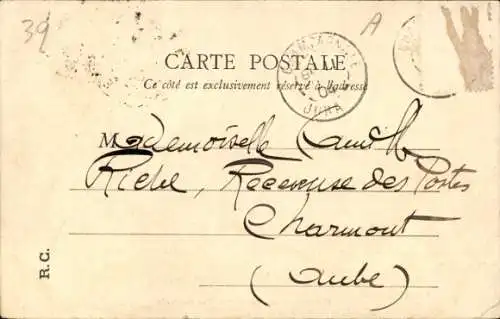 39
A
CARTE POSTALE
Ce côté est exclusivement réservé à l'adresse
CHAMPAGNOLE
04
JURA
Mademoiselle Camille
Riche, Receveuse des Postes
Charmont
(Aube)
R.C.